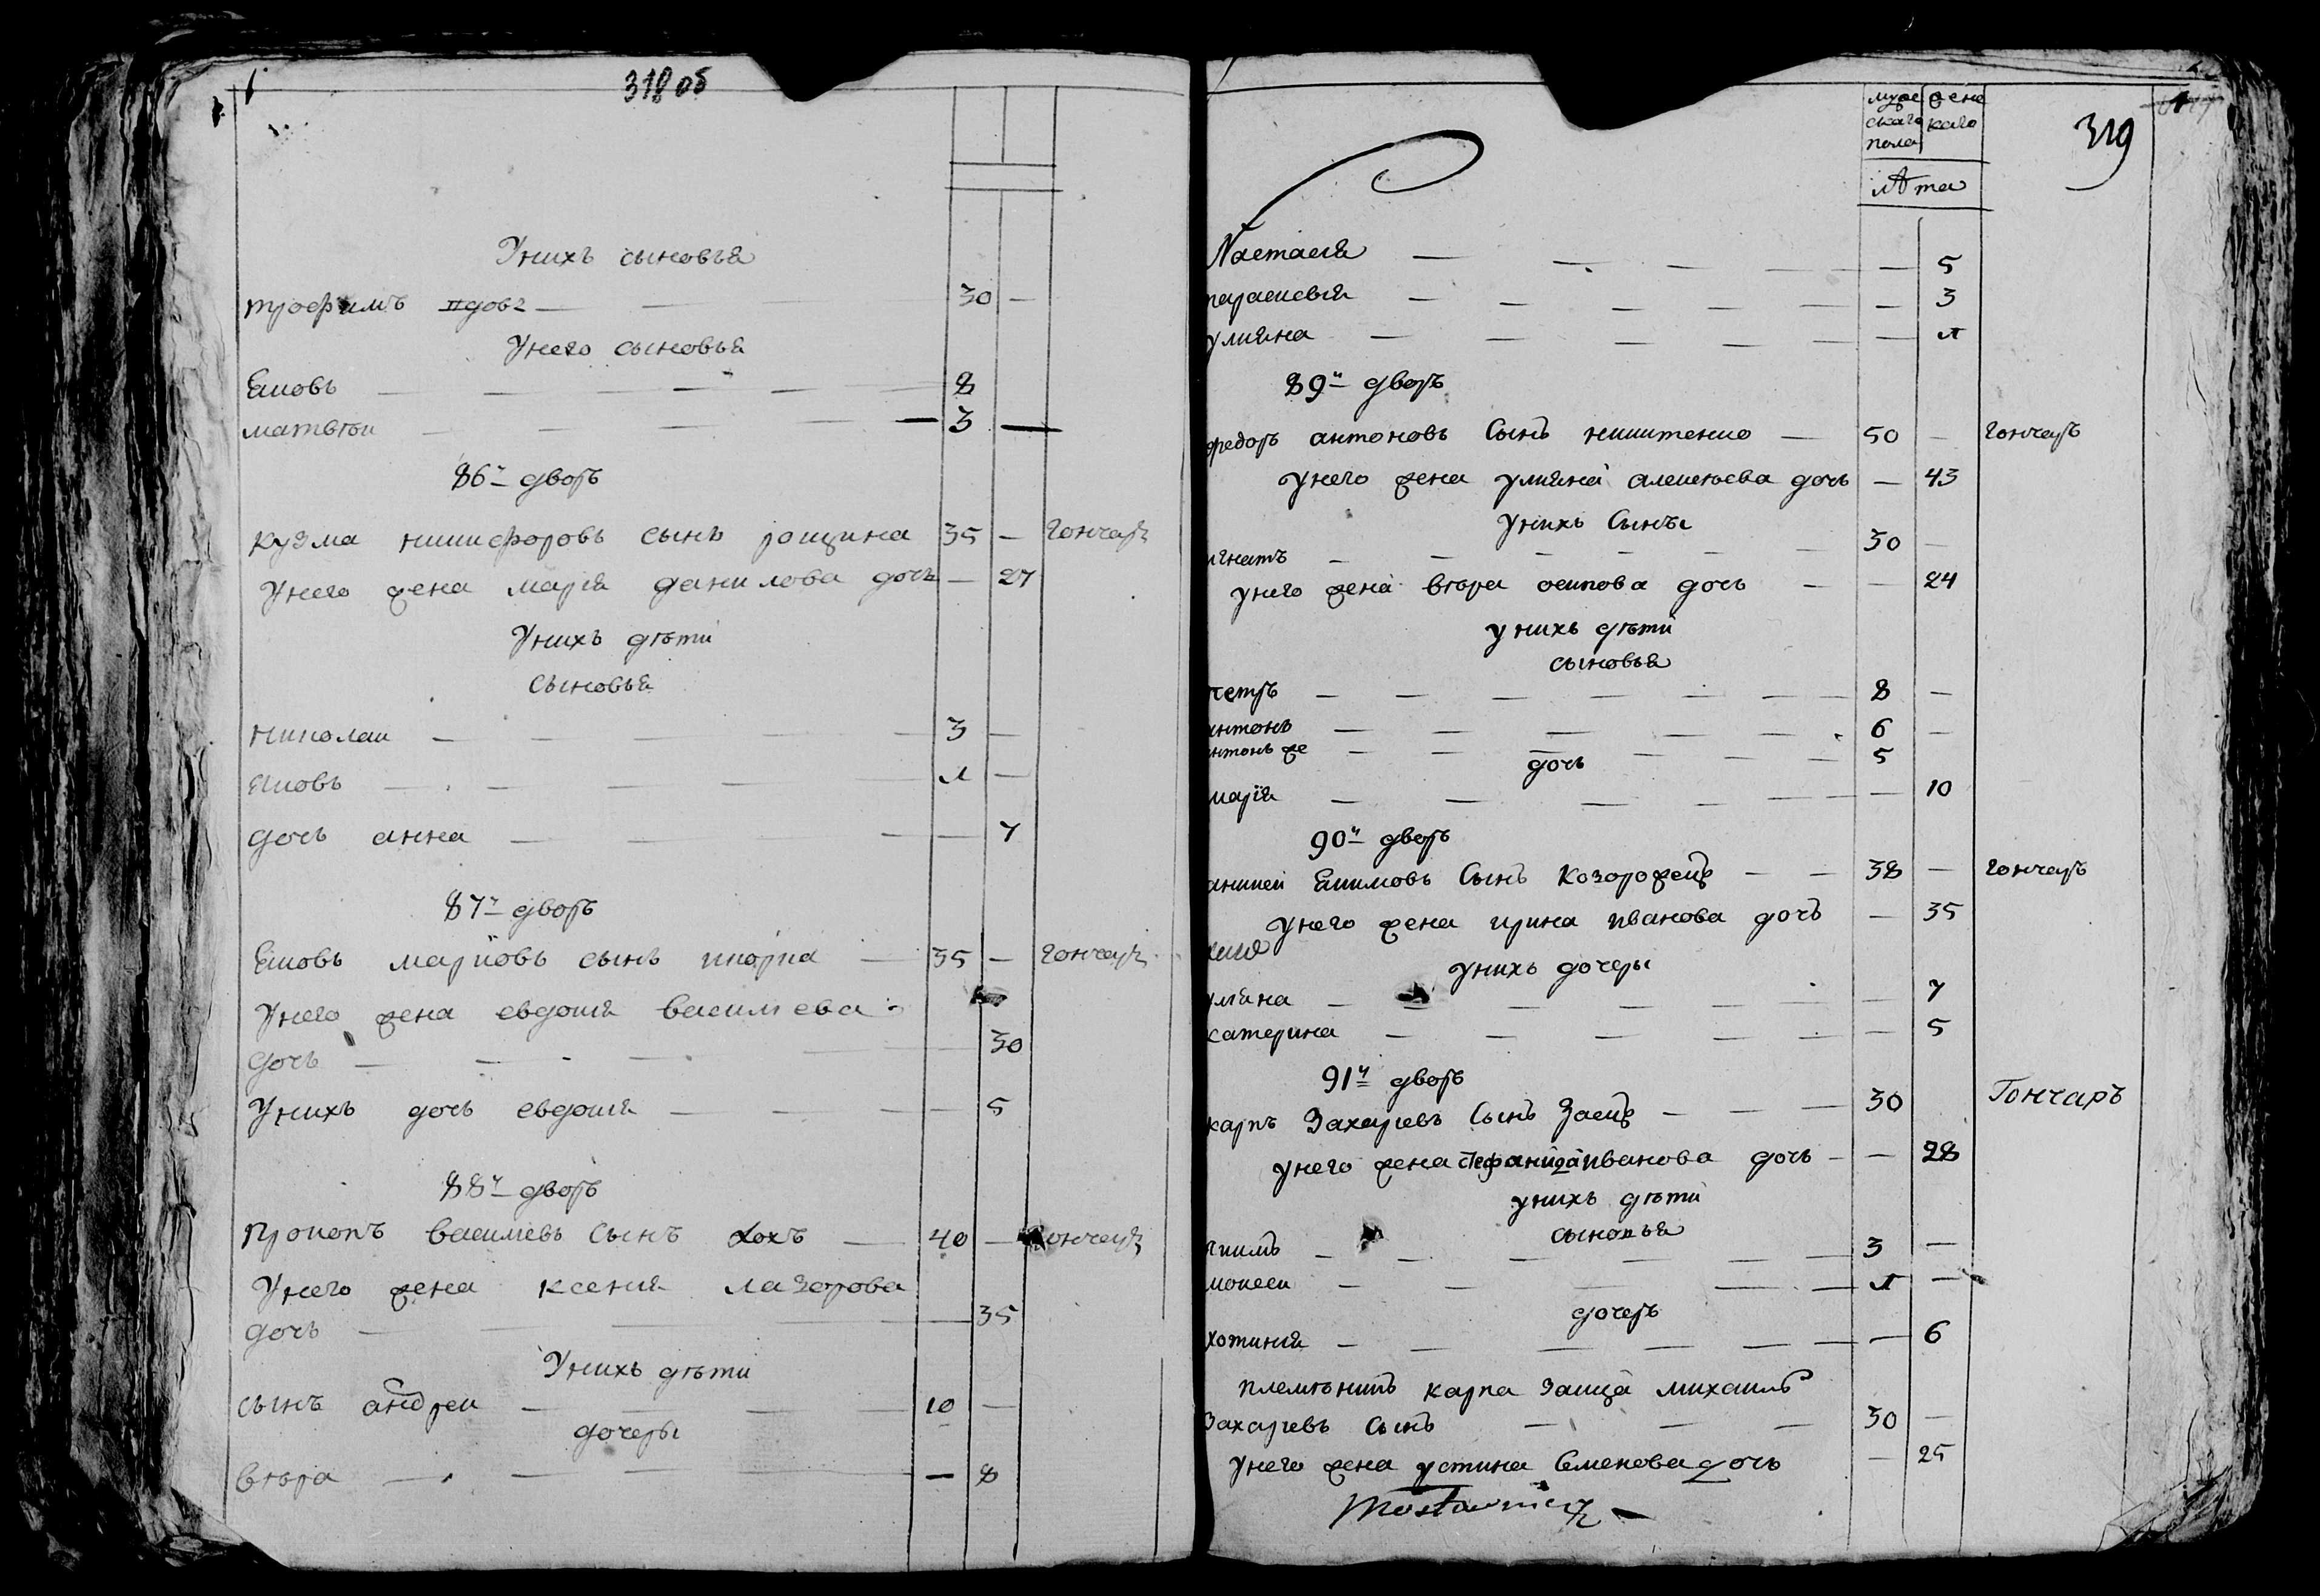 318 об
Унихъ сыновья
трофимъ вдовъ — — 30 —
Унего сыновья
Яковъ — — — — — 8
матвѣи — — — — — 3 —
86й дворъ
кузма никифоровъ сынъ рощина 35 — Гончаръ
Унего жена марiя данилова дочь — 27
Унихъ дѣти
сыновья
николаи — — — — — 3 —
яковъ — — — — л —
дочь анна — — — — 7
87й дворъ
Яковъ марковъ сынъ шкорка — 35 — Гончаръ
Унего жена евдокия василиева
дочь — — — — — 30
Унихъ дочь евдокия — — — — 5
88й дворъ
прокопъ василиевъ сынъ хохъ — 40 — Гончаръ
Унего жена ксения лазорова
дочь — — — — — 35
Унихъ дѣти
сынъ андреи — — — 10 —
дочеры
вѣра — — — — — 8
муже
скаго
пола
жене
каго
319
лѣта
Настасия — — — — — 5
параскевия — — — — — 3
улияна — — — — — л
89й дворъ
федоръ антоновъ Сынъ никитенко — 50 — Гончаръ
унего жена улияна алексѣева дочь — 43
унихъ Сынъ
игнатъ — — — — — 30 —
унего жена вѣра осипова дочь — — 24
у нихъ дѣти
сыновья
петръ — — — — — — 8 —
антонъ — — — — — 6 —
антонъ же — — — — — 5
дочь
марiя — — — — — — 10
90й дворъ
аникеи Якимовъ Сынъ Козорожецъ — — 38 — Гончаръ
унего жена ирина иванова дочь — 35
унихъ дочеры
улияна — — — — — — 7
катерина — — — — — — 5
91й дворъ
карпъ Захариевъ Сынъ Заецъ — — — 30 Гончаръ
унего жена стефанида иванова дочь — — 28
унихъ дѣти
сыновья
якимъ — — — — — 3 —
мокеи — — — — л —
дочеръ
хотиния — — — — — — 6
племѣникъ карпа Заица михаилъ
Захариевъ Сынъ — — — 30 —
унего жена устина Семенова дочь — 25